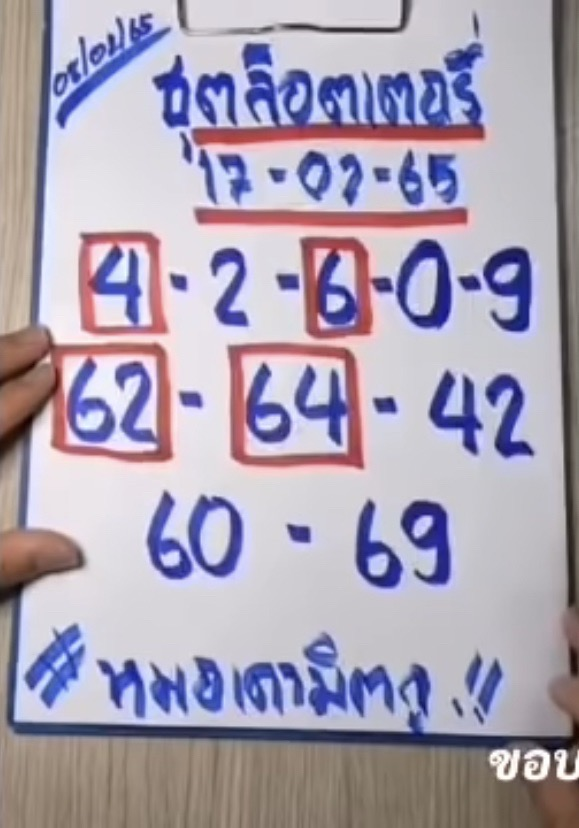 08/02/65
ชุดล็อตเตอรี่
17-02-65
4-2-6-0-9
62-64-42
60-69
#หมอเดามิตกู.!!
ขอบ